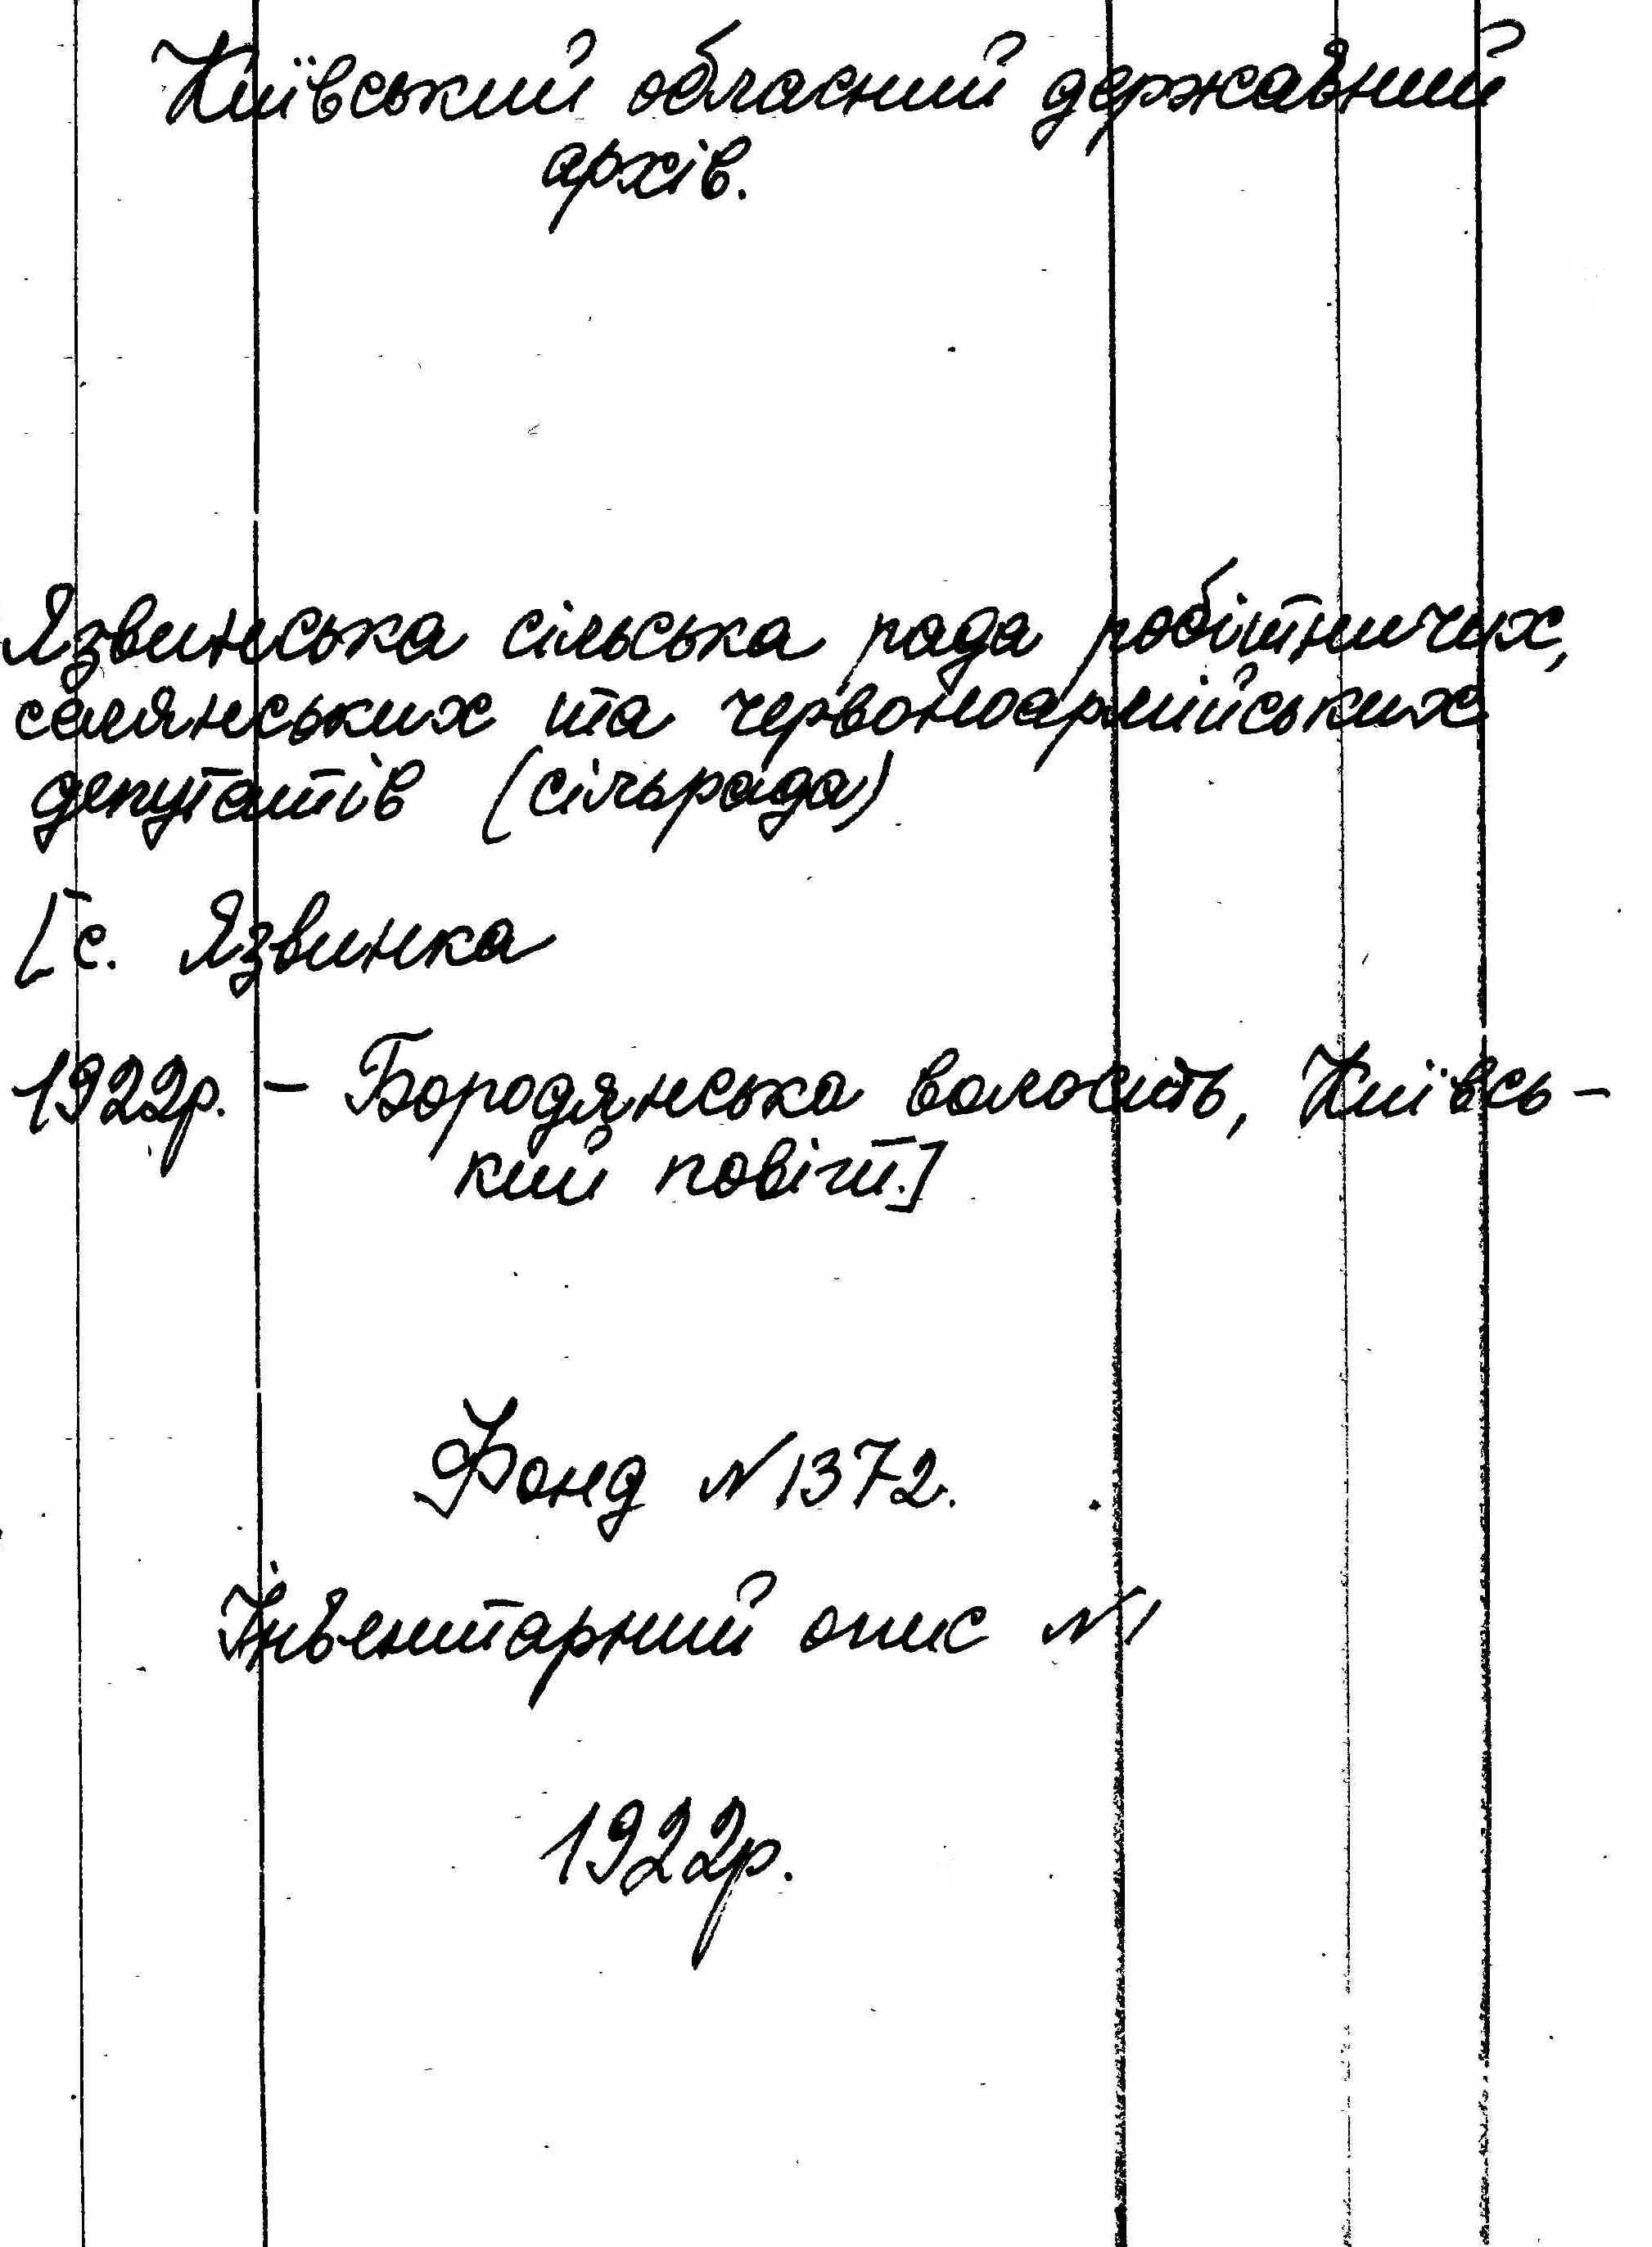 Київський обласний державний
архів.
Язвинська сільська рада робітничих,
селянських та червоноармійських
депутатів (сільрада)
[с. Язвинка
1922р. – Бородянська волость, Київсь-
кий повіт.]
Фонд №1372.
Інвентарний опис №1
1922р.